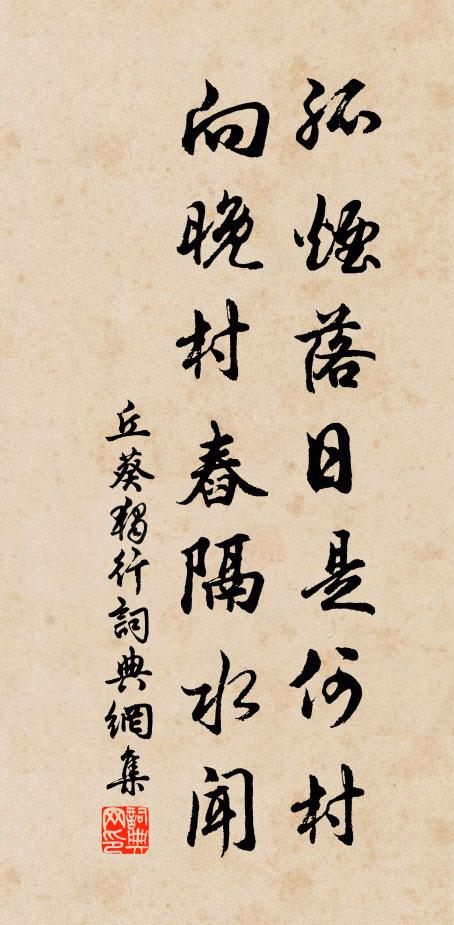 孤煙落日是何村
向晚村舂隔水闻
丘葵獨行詞典網集
詞典
网印